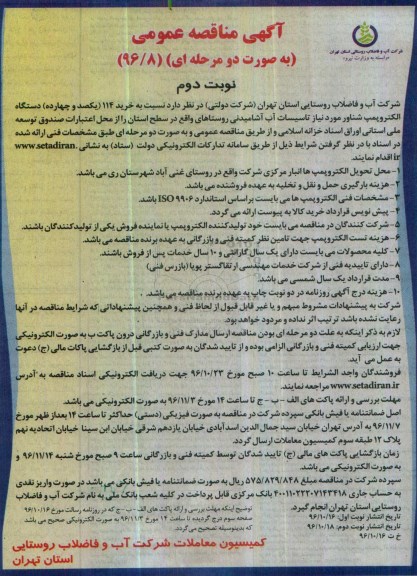 شرکت آب و فاضلاب روستایی استان تهران
آگهی مناقصه عمومی
(به صورت دو مرحله ای) (۹۶/۸)
نوبت دوم
شرکت آب و فاضلاب روستایی استان تهران (شرکت دولتی) در نظر دارد نسبت به خرید ۱۱۴ (یکصد و چهارده) دستگاه
الکتروپمپ شناور مورد نیاز تاسیسات آب آشامیدنی روستاهای واقع در سطح استان را از محل اعتبارات صندوق توسعه
ملی استانی اوراق اسناد خزانه اسلامی و از طریق مناقصه عمومی و به صورت دو مرحله ای طبق مشخصات فنی ارائه شده
در اسناد با در نظر گرفتن شرایط ذیل از طریق سامانه تدارکات الکترونیکی دولت (ستاد) به نشانی www.setadiran.
ir اقدام نمایند.
۱- محل تحویل الکتروپمپ ها انبار مرکزی شرکت واقع در روستای غنی آباد شهرستان ری می باشد.
۲- هزینه بارگیری حمل و نقل و تخلیه به عهده فروشنده می باشد.
۳- مشخصات فنی الکتروپمپ ها می بایست براساس استاندارد ISO ۹۹۰۶ باشد.
۴- پیش نویس قرارداد خرید کالا به پیوست ارائه می گردد.
۵- شرکت کنندگان در مناقصه می بایست خود تولیدکننده الکتروپمپ یا نماینده فروش یکی از تولیدکنندگان باشند.
۶- هزینه تست الکتروپمپ جهت تامین نظر کمیته فنی و بازرگانی به عهده برنده مناقصه می باشد.
۷- کلیه محصولات می بایست دارای یک سال گارانتی و ۱۰ سال خدمات پس از فروش باشند.
۸-دارای تاییدیه فنی از شرکت خدمات مهندسی ارتفاگستر پویا (بازرس فنی)
۹- مدت قرارداد یک سال شمسی می باشد.
۱۰- هزینه درج آگهی روزنامه در دو نوبت چاپ به عهده برنده مناقصه می باشد.
شرکت به پیشنهادات مشروط مبهم و یا غیر قابل قبول از لحاظ فنی و همچنین پیشنهاداتی که شرایط مناقصه در آنها
رعایت نشده باشد ترتیب اثر نداده و مردود خواهد بود.
لازم به ذکر اینکه به علت دو مرحله ای بودن مناقصه ارسال مدارک فنی و بازرگانی درون پاکت ب به صورت الکترونیکی
جهت ارزیابی کمیته فنی و بازرگانی الزامی بوده و از تایید شدگان به صورت کتبی قبل از بازگشایی پاکات مالی (ج) دعوت
به عمل می آید.
فروشندگان واجد الشرایط تا ساعت ۱۰ صبح مورخ ۹۶/۱۰/۲۳ جهت دریافت الکترونیکی اسناد مناقصه به آدرس
www.setadiran.ir مراجعه نمایند.
مهلت بررسی و ارائه پاکت های الف - ب - ج تا ساعت ۱۴ مورخ ۹۶/۱۱/۳ به صورت الکترونیکی می باشد.
اصل ضمانتنامه یا فیش بانکی سپرده شرکت در مناقصه به صورت فیزیکی (دستی) حداکثر تا ساعت ۱۴ بعداز ظهر مورخ
۹۶/۱۱/۷ به آدرس تهران خیابان سید جمال الدین اسدآبادی خیابان یازدهم شرقی خیابان ابن سینا خیابان اتحادیه نهم
پلاک ۱۲ طبقه سوم کمیسیون معاملات ارسال گردد.
زمان بازگشایی پاکت های مالی (ج) تایید شدگان توسط کمیته فنی و بازرگانی ساعت ۹ صبح مورخ شنبه ۹۶/۱۱/۱۴ و
به صورت الکترونیکی می باشد.
سپرده شرکت در مناقصه مبلغ ۵۷۵/۸۲۹/۸۴۸ ریال به صورت ضمانتنامه یا فیش بانکی می باشد در صورت واریز نقدی
به حساب جاری ۴۰۰۱۱۰۲۲۰۷۱۴۳۴۱۸ بانک مرکزی قابل پرداخت در کلیه شعب بانک ملی به نام شرکت آب و فاضلاب
روستایی استان تهران انجام گیرد.
تاریخ انتشار نوبت اول: ۹۶/۱۰/۱۶
تاریخ انتشار نوبت دوم: ۹۶/۱۰/۱۸
خ ت ۹۶/۱۰/۱۶
توضیح اینکه مهلت بررسی و ارائه پاکت های الف - ب - ج که در روزنامه رسالت مورخ ۹۶/۱۰/۱۶
صفحه سوم درج گردیده تا ساعت ۱۴ مورخ ۹۶/۱۱/۳ به صورت الکترونیکی صحیح می باشد
که بدینوسیله تصحیح می گردد.
کمیسیون معاملات شرکت آب و فاضلاب روستایی
استان تهران